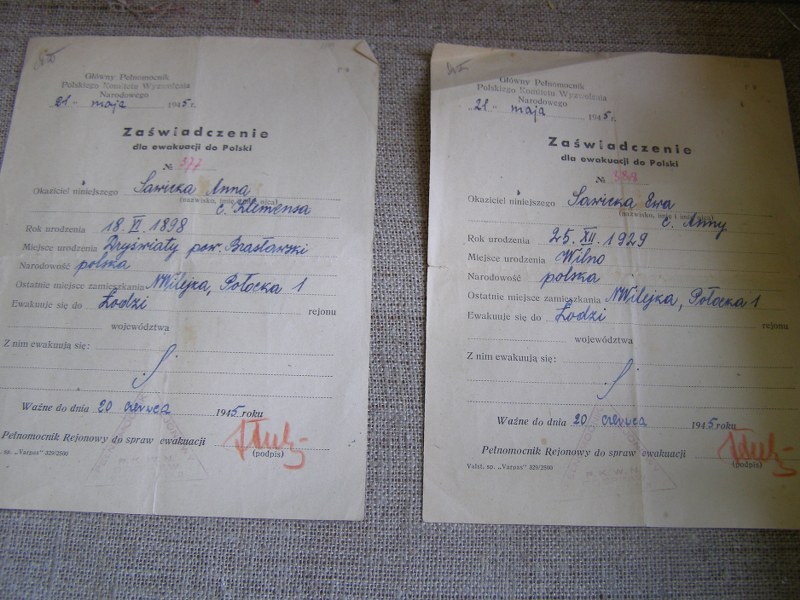 Główny Pełnomocnik
Polskiego Komitetu Wyzwolenia
Narodowego
21 - maja 1945 r.
Zaświadczenie
dla ewakuacji do Polski
№ 377
Okaziciel niniejszego Sawicka Anna
c. Klemensa
Rok urodzenia 18. VI. 1898
Miejsce urodzenia Dryświaty pow. Brasławski
Narodowość polska
Ostatnie miejsce zamieszkania NWilejka, Połocka 1
Ewakuuje się do Łodzi rejonu
województwa
Z nim ewakuują się:
Ważne do dnia 20 czerwca 1945 roku
Pełnomocnik Rejonowy do spraw ewakuacji
(podpis)
sp. „Vaizdas" 329/2500
Główny Pełnomocnik
Polskiego Komitetu Wyzwolenia
Narodowego
21 - maja 1945 r.
Zaświadczenie
dla ewakuacji do Polski
№
Okaziciel niniejszego Sawicka Ewa
(nazwisko, imię i imię ojca)
c. Anny
Rok urodzenia 25. XII. 1929
Miejsce urodzenia Wilno
Narodowość polska
Ostatnie miejsce zamieszkania NWilejka, Połocka 1
Ewakuuje się do Łodzi rejonu
województwa
Z nim ewakuują się:
Ważne do dnia 20 czerwca 1945 roku
Pełnomocnik Rejonowy do spraw ewakuacji
(podpis)
Valst. sp.